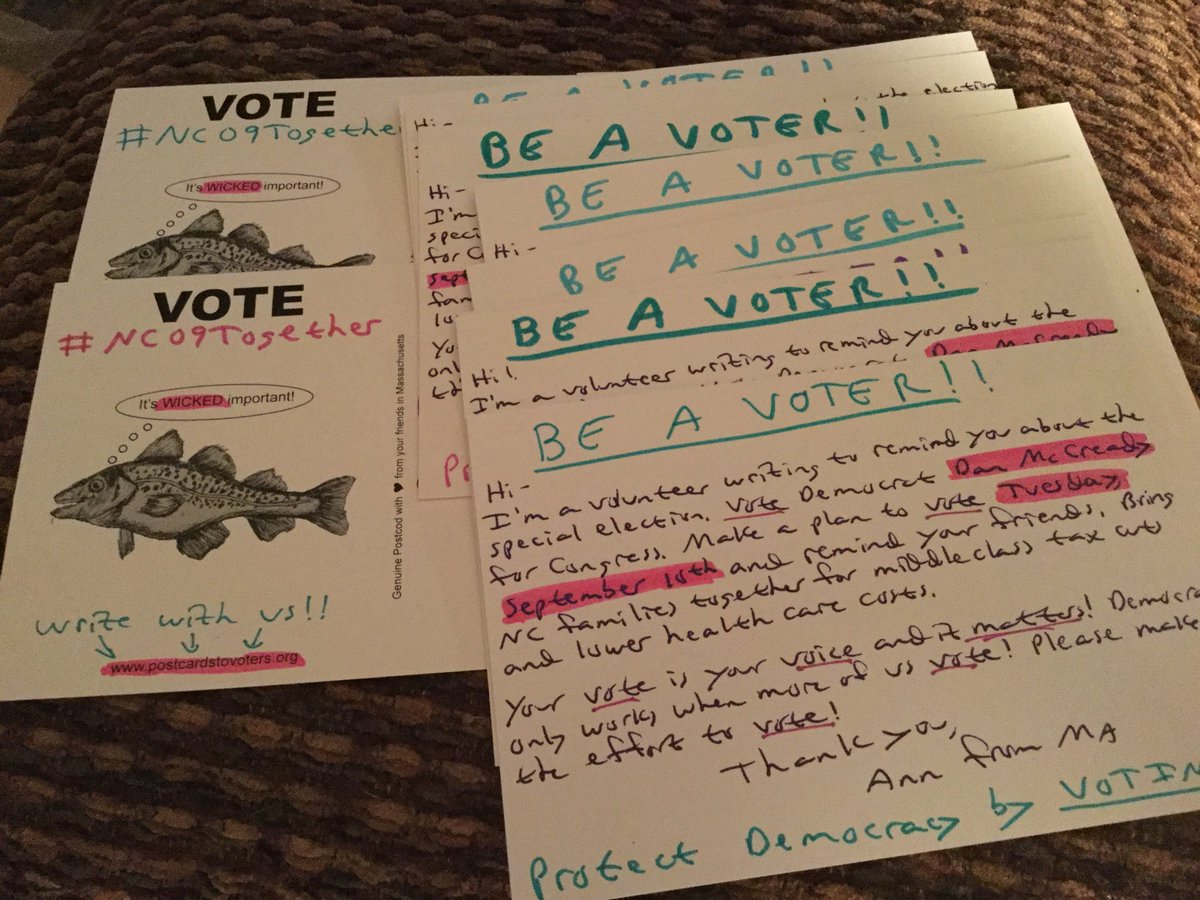 VOTE
#NC09Together
It's WICKED important!
VOTE
#NC09Together
It's WICKED important!
Genuine Postcod with ♥ from your friends in Massachusetts
Write with us!!
www.postcardstovoters.org
BE A VOTER!!
Hi-
the election
BE A VOTER!!
Hi-
I'm
BE A VOTER!!
Hi-
BE A VOTER!!
BE A VOTER!!
Hi!
I'm a volunteer writing to remind you about the
Dan McCready
BE A VOTER!!
Hi-
I'm a volunteer writing to remind you about the
special election. Vote Democrat Dan McCready
for Congress. Make a plan to vote Tuesday,
September 10th and remind your friends. Bring
NC families together for middle class tax cuts
and lower health care costs.
Your vote is your voice and it matters! Democra
only works when more of us vote! Please make
the effort to vote!
Thank you,
Ann from MA
Protect Democracy by VOTIN